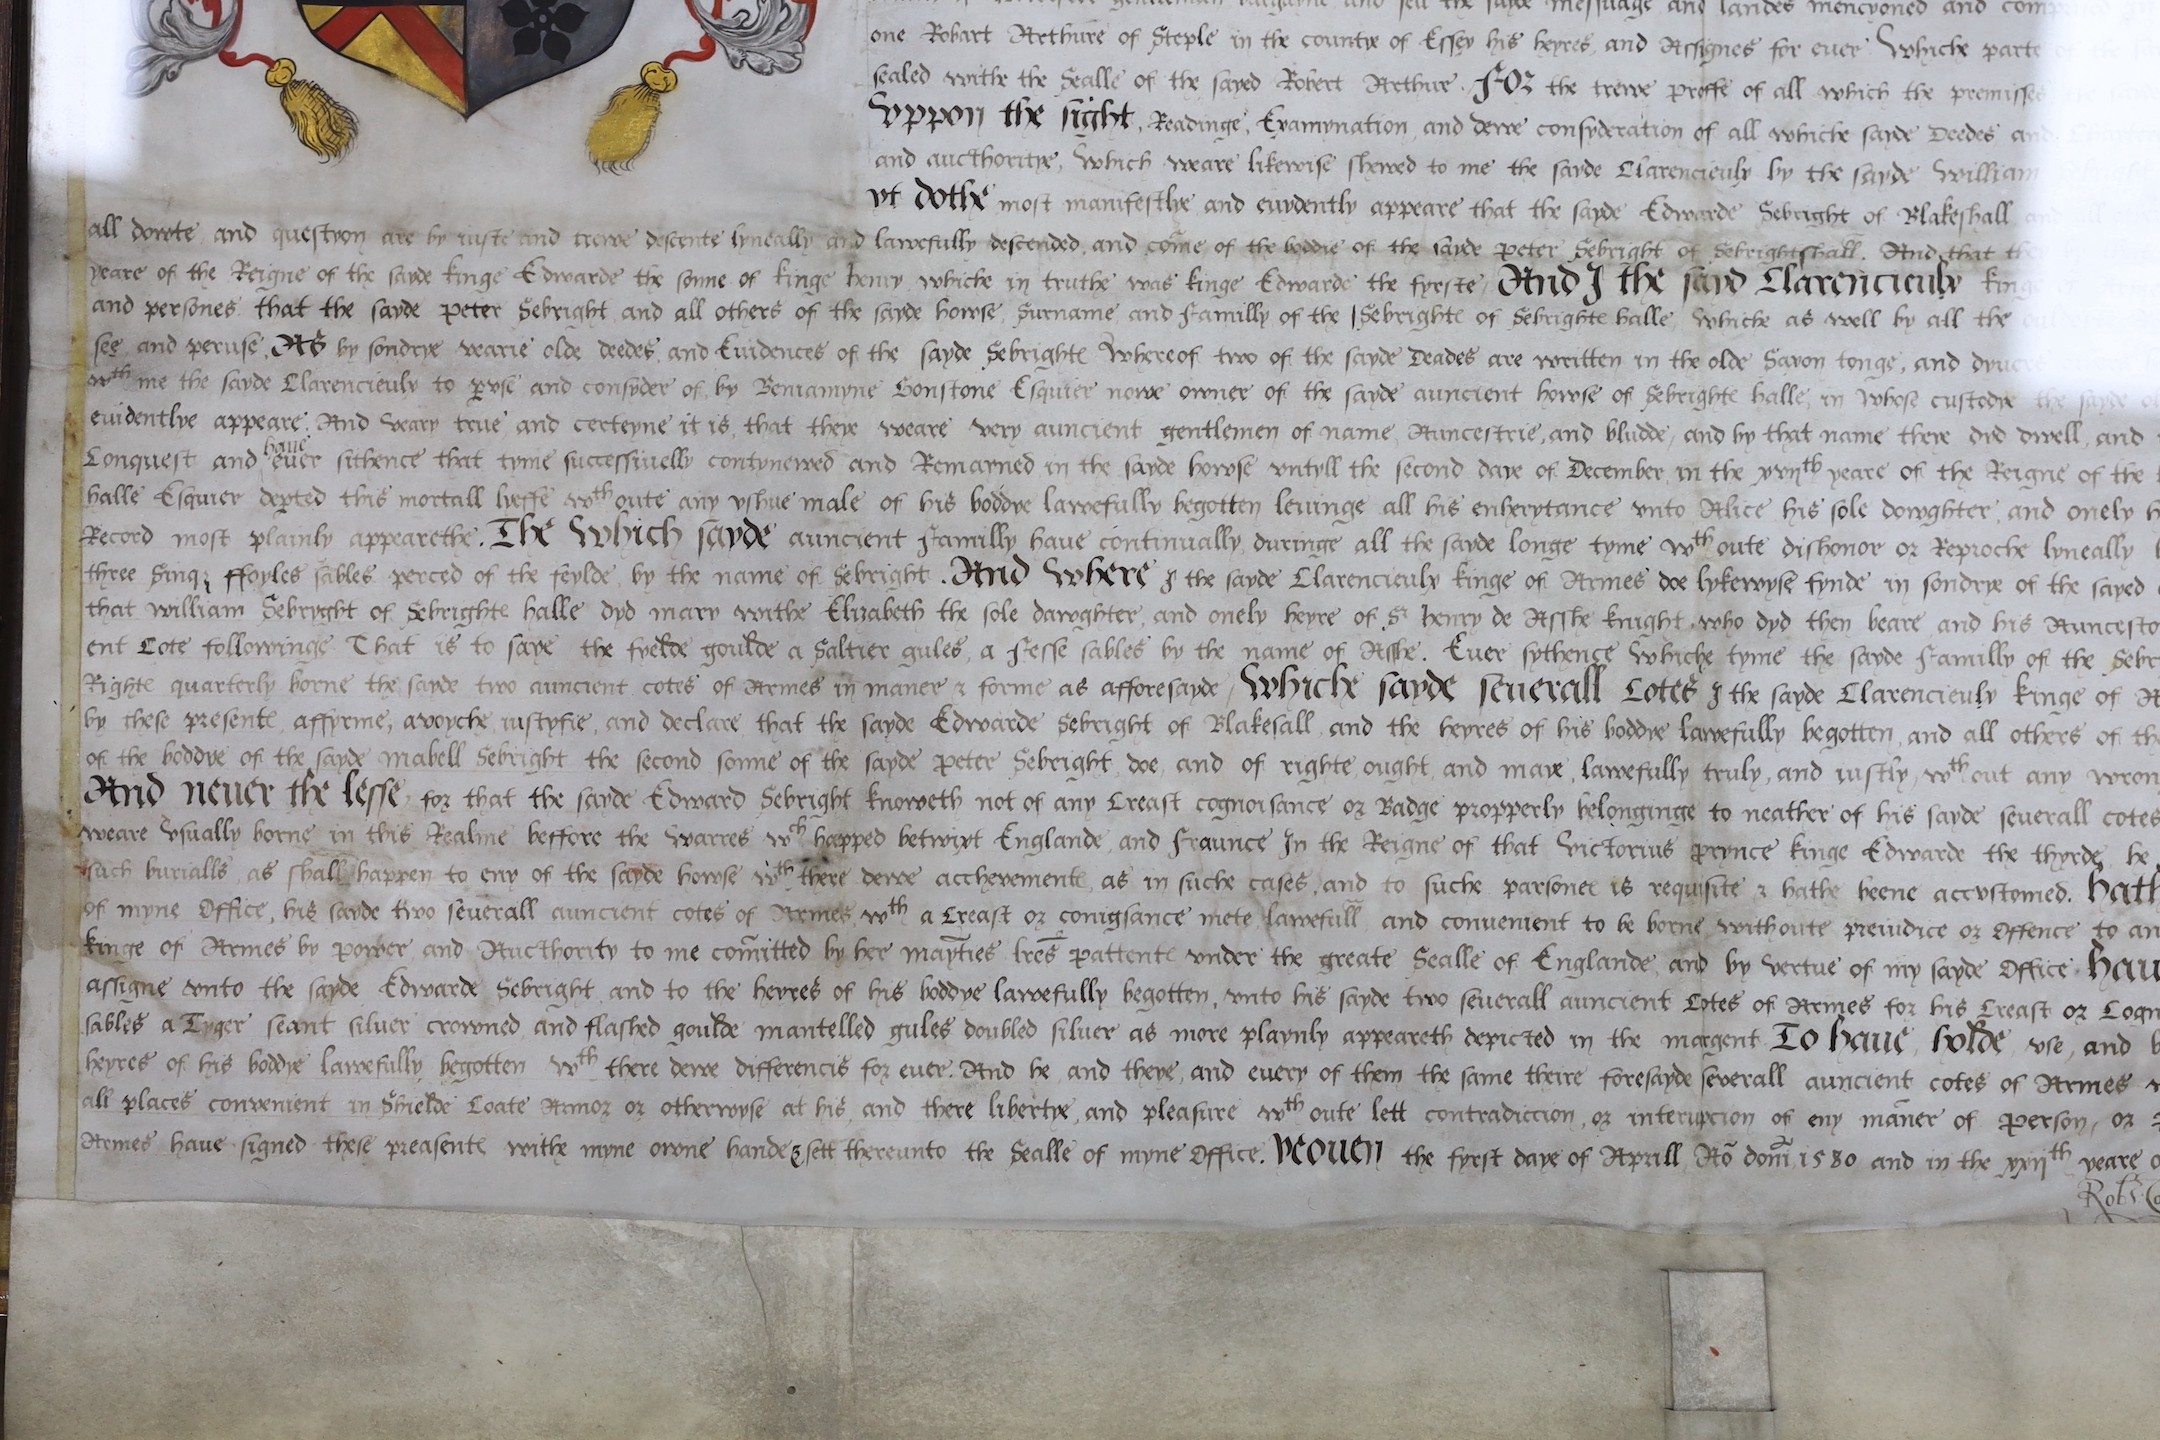 gentleman bargayne and sell the sayde messuage and landes mencyoned and
one Robart Arthure of Steple in the countye of Essex his heyres and Assignes for euer Whiche parte
sealed withe the Sealle of the sayed Robert Arthure. FOr the trewe proffe of all which the premisses
Vppon the sight, Readinge, Examynation and dewe consyderation of all whiche sayde Deedes and
and aucthoritye, Which weare likewise shewed to me the sayde Clarencieulx by the sayde William
yt dothe most manifestlye and euydently appeare that the sayde Edwarde Sebright of Blakeshall
all dowte and questyon are by iuste and trewe descente lyneally and lawefully descended, and come of the boddie of the sayde Peter Sebright of Sebrightshall. And that the
yeare of the Reigne of the sayde kinge Edwarde the sonne of kinge henry whiche in truthe was kinge Edwarde the fyrste, And I the sayd Clarencieulx kinge
and persones that the sayde Peter Sebright and all others of the sayde howse Surname and Familly of the Sebrighte of Sebrighte halle, whiche as well by all the
see and peruse, As by sondrye wearie olde deedes and Euidences of the sayde Sebrighte Whereof two of the sayde Deades are written in the olde Saxon tonge, and
wth me the sayde Clarencieulx to pvse and consyder of, by Beniamyne Gonstone Esquier nowe owner of the sayde auncient howse of Sebrighte halle, in whose custodye the sayde
euidentlye appeare. And veary true and certeyne it is, that theye weare very auncient gentlemen of name, Auncestrie, and bludde, and by that name there dyd dwell, and
Conquest and haue euer sithence that tyme successiuelly contynewed and Remarned in the sayde howse vntyll the second daye of December in the xvijth yeare of the Reigne of the
halle Esquier depted this mortall lyeffe wth oute any yshue male of his boddye lawefully begotten leuinge all his enherytance vnto Alice his sole dowghter and onely
Record most plainly appearethe. The Which sayde auncient Familly haue continually duringe all the sayde longe tyme wth oute dishonor or Reproche lyneally
three Sinq ffoyles sables perced of the feylde by the name of Sebright. And Where I the sayde Clarencieulx kinge of Armes doe lykewyse fynde in sondrye of the sayed
that William Sebryght of Sebrighte halle dyd mary withe Elizabeth the sole dawghter and onely heyre of Sr henry de Asshe knight who dyd then beare and his
ent Cote followinge That is to saye the fyelde goulde a Saltier gules, a Fesse sables by the name of Asshe. Euer sythence Whiche tyme the sayde Familly of the
Righte quarterly borne the sayde two auncient cotes of Armes in maner & forme as afforesayde, Whiche sayde seuerall Cotes I the sayde Clarencieulx kinge of
by these presente affyrme, avoyche, iustyfie, and declare that the sayde Edwarde Sebright of Blakesall and the heyres of his boddye lawefully begotten and all others of
of the boddye of the sayde Mabell Sebright the second sonne of the sayde Peter Sebright doe, and of righte ought and maye lawefully truly, and iustly, wth out any
And neuer the lesse, for that the sayde Edward Sebright knoweth not of any Creast cognoisance or Badge propperly belonginge to neather of his sayde seuerall cotes
weare vsually borne in this Realme beffore the warres wch happed betwixt Englande and Fraunce In the Reigne of that victorius prynce kinge Edwarde the thyrde, he
such burialls as shall happen to eny of the sayde howse wth there dewe acchevemente, as in suche cases, and to suche parsone is requisite & hathe beene accvstomed.
of myne Office, his sayde two seuerall auncient cotes of Armes wth a Creast or conigsance mete lawefull and convenient to be borne withoute preiudice or Offence to
kinge of Armes by power and Aucthority to me comitted by her mayties lres Pattente vnder the greate Sealle of Englande, and by vertue of my sayde Office
assigne vnto the sayde Edwarde Sebright and to the heyres of his boddye lawefully begotten, vnto his sayde two seuerall auncient Cotes of Armes for his Creast or
sables a Tyger seant siluer crowned and flashed goulde mantelled gules doubled siluer as more playnly appeareth depicted in the margent To haue, holde, vse, and
heyres of his boddye lawefully begotten wth there dewe differencis for euer. And he and theye, and euery of them the same theire foresayde seuerall auncient cotes of Armes
all places convenient in Shielde Coate Armor or otherwyse at his, and there libertye, and pleasure wth oute lett contradiccion, or interupcion of eny maner of Person, or
Armes haue signed these preasente withe myne owne hande & sett thereunto the Sealle of myne Office. Yeouen the fyrst daye of Aprill, Ao domi 1580 and in the xxijth yeare